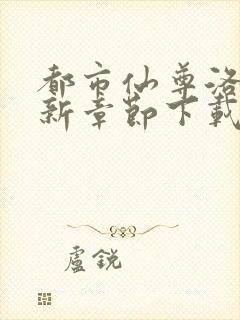 都市仙尊洛
新章節下載
盧銳